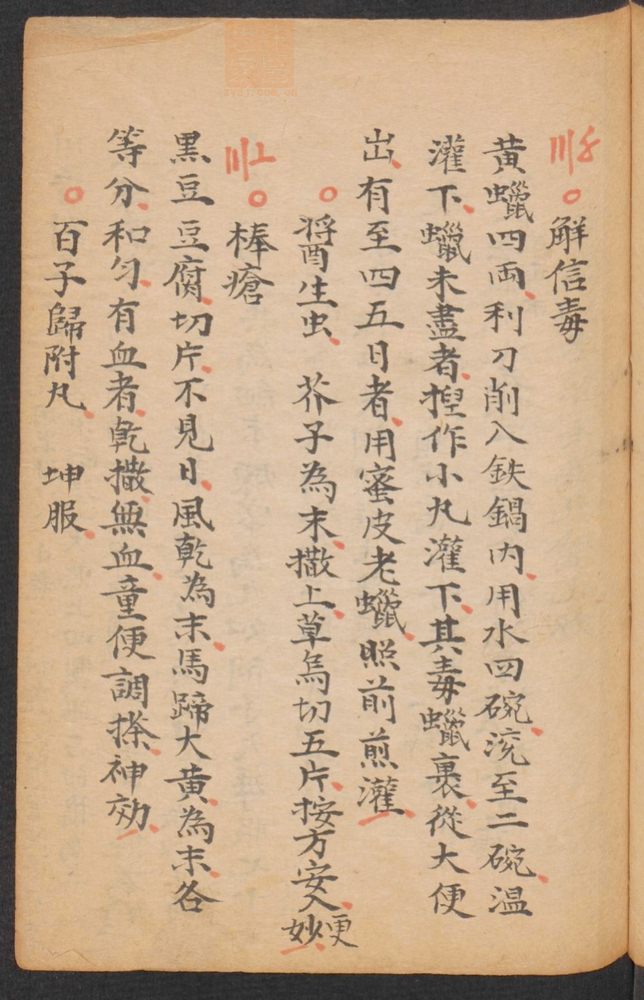 解信毒
黃蠟四兩利刀削入鉄鍋內用水四碗滾至二碗温
灌下蠟未盡者揑作小丸灌下其毒蠟裹從大便
出有至四五日者用蜜皮老蠟照前煎灌
醬生虫 芥子為末撒上草烏切五片按方安入更妙
棒瘡
黑豆豆腐切片不見日風乾為末馬蹄大黃為末各
等分和匀有血者乾撒無血童便調搽神効
百子歸附丸 坤服